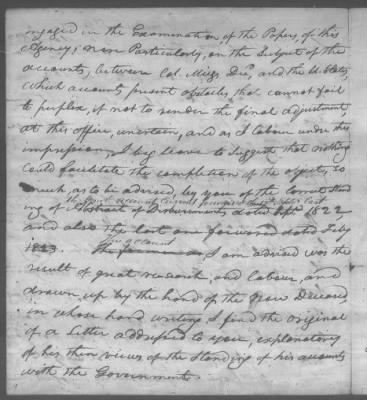 engaged in the Examination, of the Papers, of this
Agency; more Particularly, on the Subject of the
accounts, between Col. Meigs Decd, and the U. States,
Which accounts, present obstacles, that cannot fail
to perplex, if not to render the final adjustment,
at this office, uncertain, and as I labour under this
impression, I beg leave to Suggest that nothing
Could facilitate the completion of the object, so
much, as to be advised, by you of the Correct Stand
the first account Current
ing of Abstract of Disbursements, dated Sept 1822
and also the last one forward dated July
1823. The I am advised was the
result of great research, and labour, and
drawn, up by the hand of the now Deceased,
in whose hand writing, I find the original
of a Letter addressed to you, explanatory
of his then views of the Standing of his accounts
with the Government